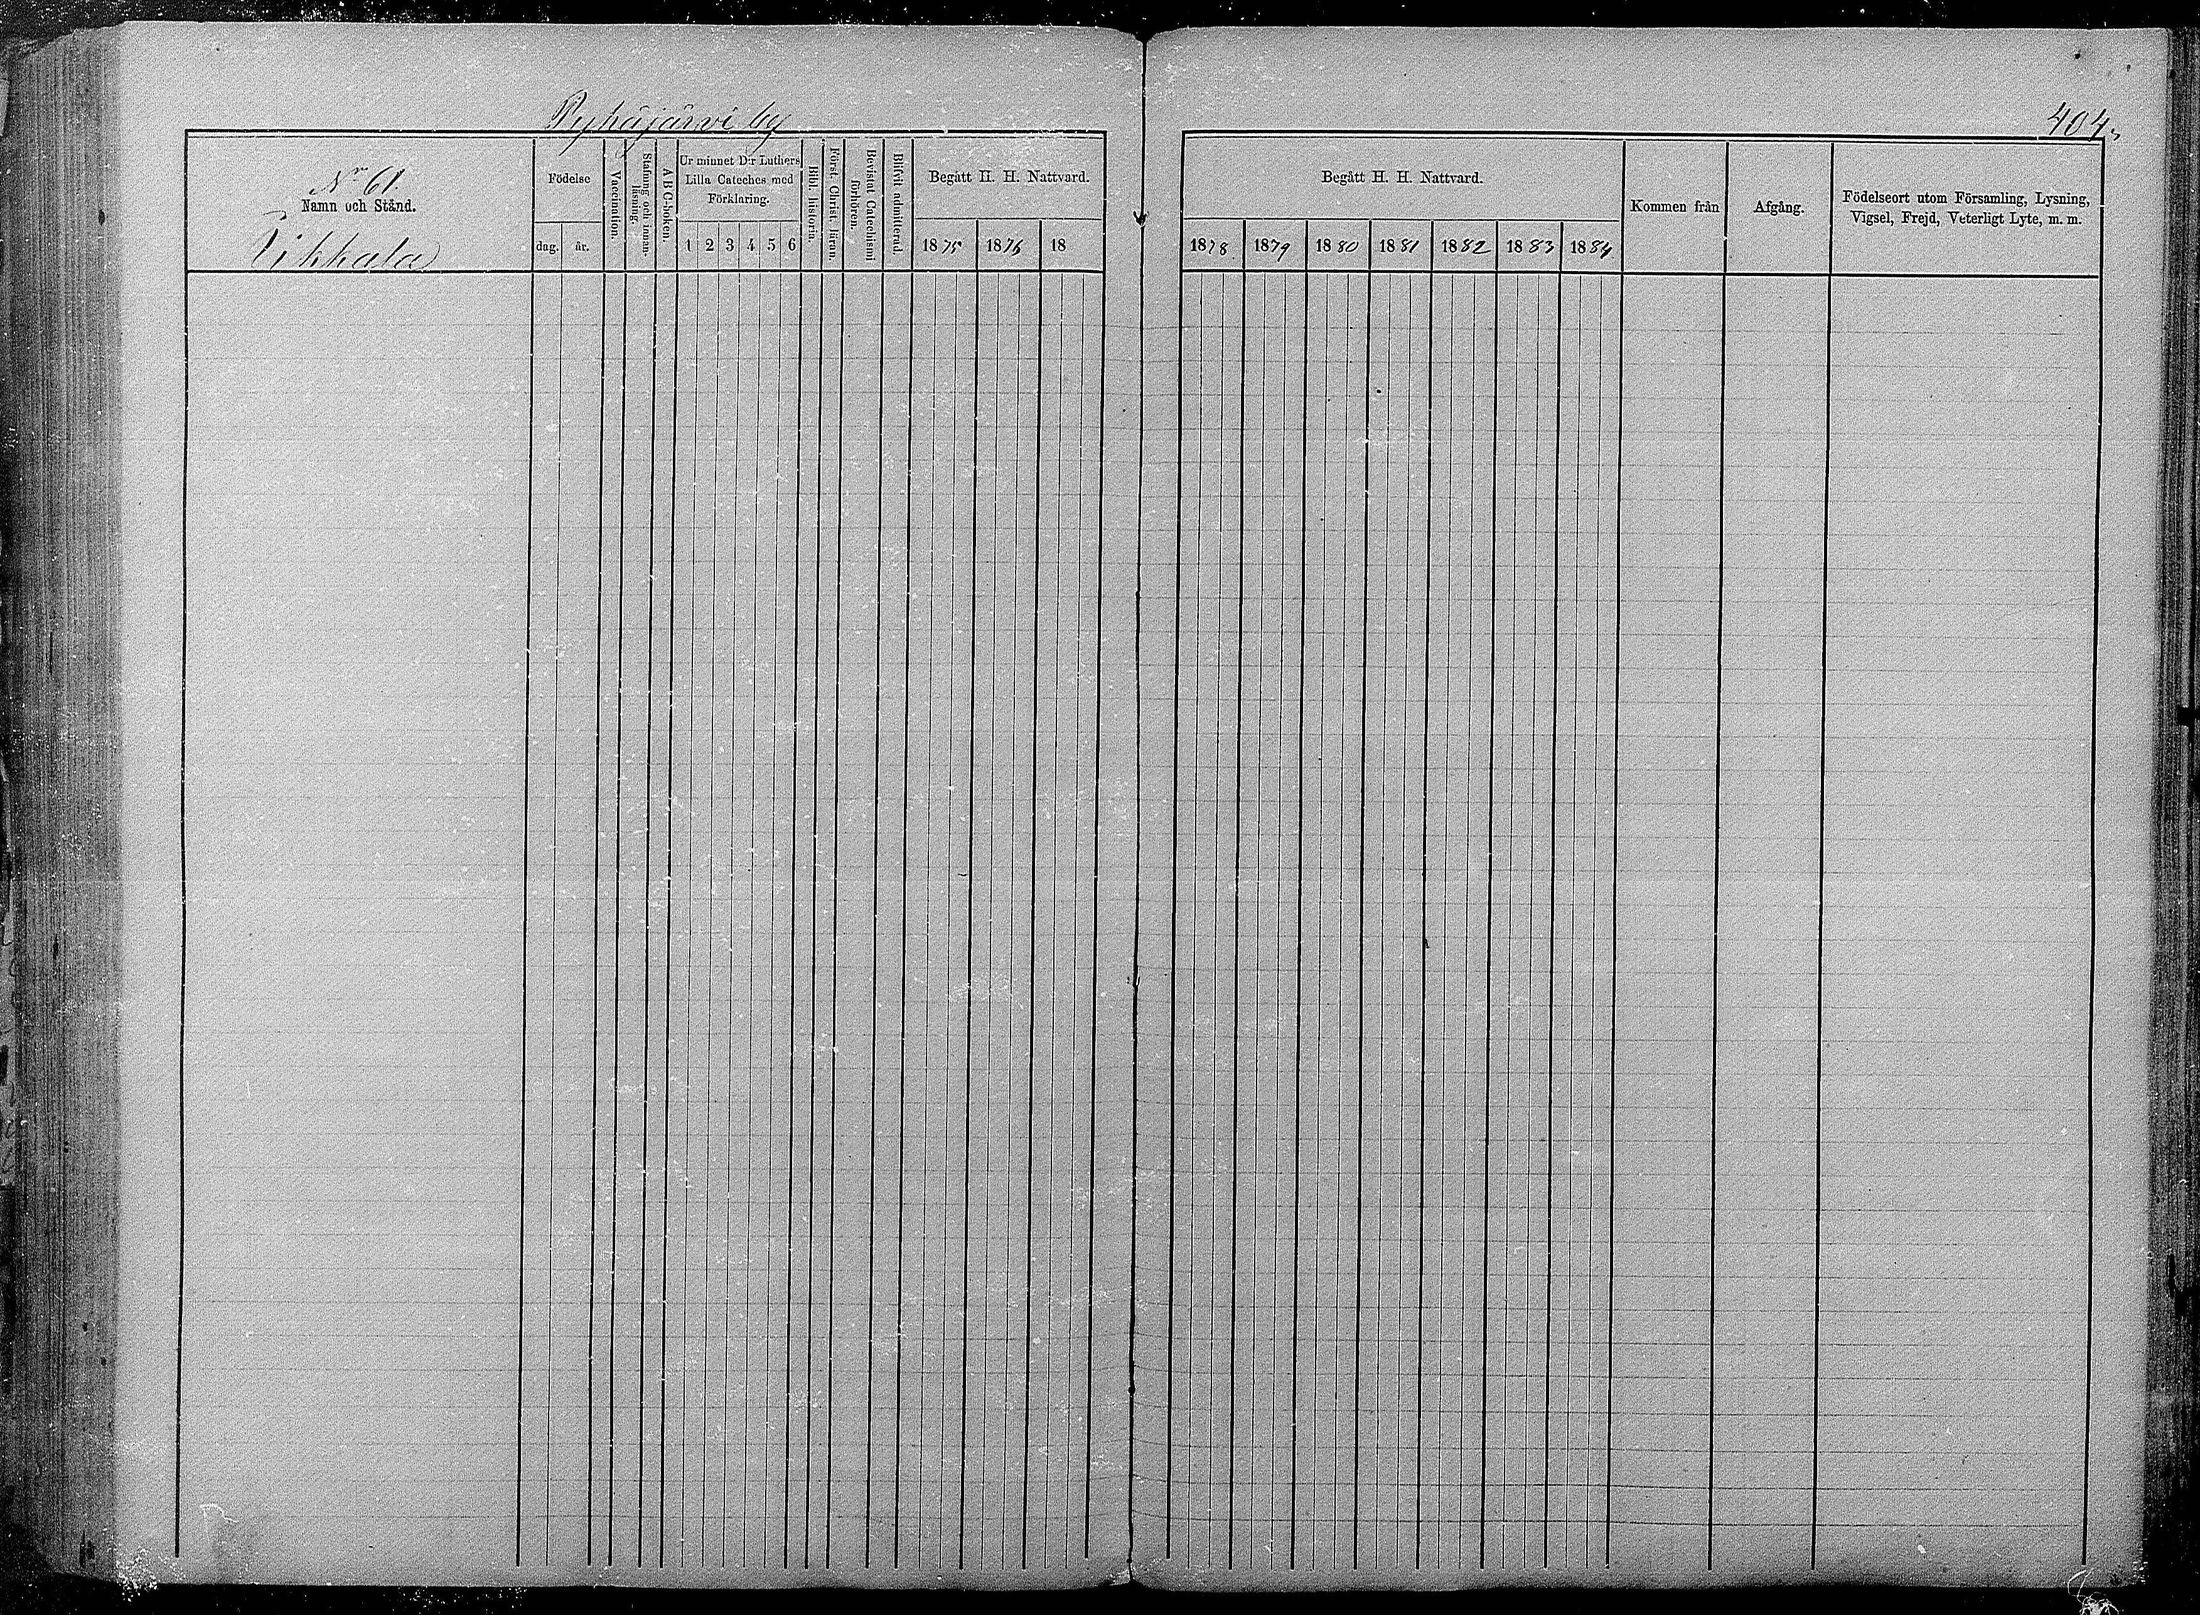 Pyhäjärvi by
404.
Nr 61.
Namn och Stånd.
Födelse
dag.
år.
Vaccination.
Stafning och innan-
läsning.
A B C-boken.
Ur minnet D:r Luthers
Lilla Cateches med
Förklaring.
1 2 3 4 5 6
Bibl. historia.
Först. Christ. läran.
Bevistat Catechismi
förhören.
Blifvit admitterad.
Begått H. H. Nattvard.
1875 1876 18
Begått H. H. Nattvard.
1878 1879 1880 1881 1882 1883 1884
Kommen från
Afgång.
Födelseort utom Församling, Lysning,
Vigsel, Frejd, Veterligt Lyte, m. m.